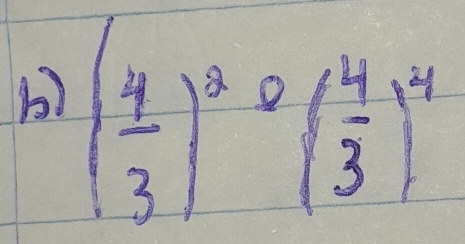 b) (4/3)² · (4/3)⁴